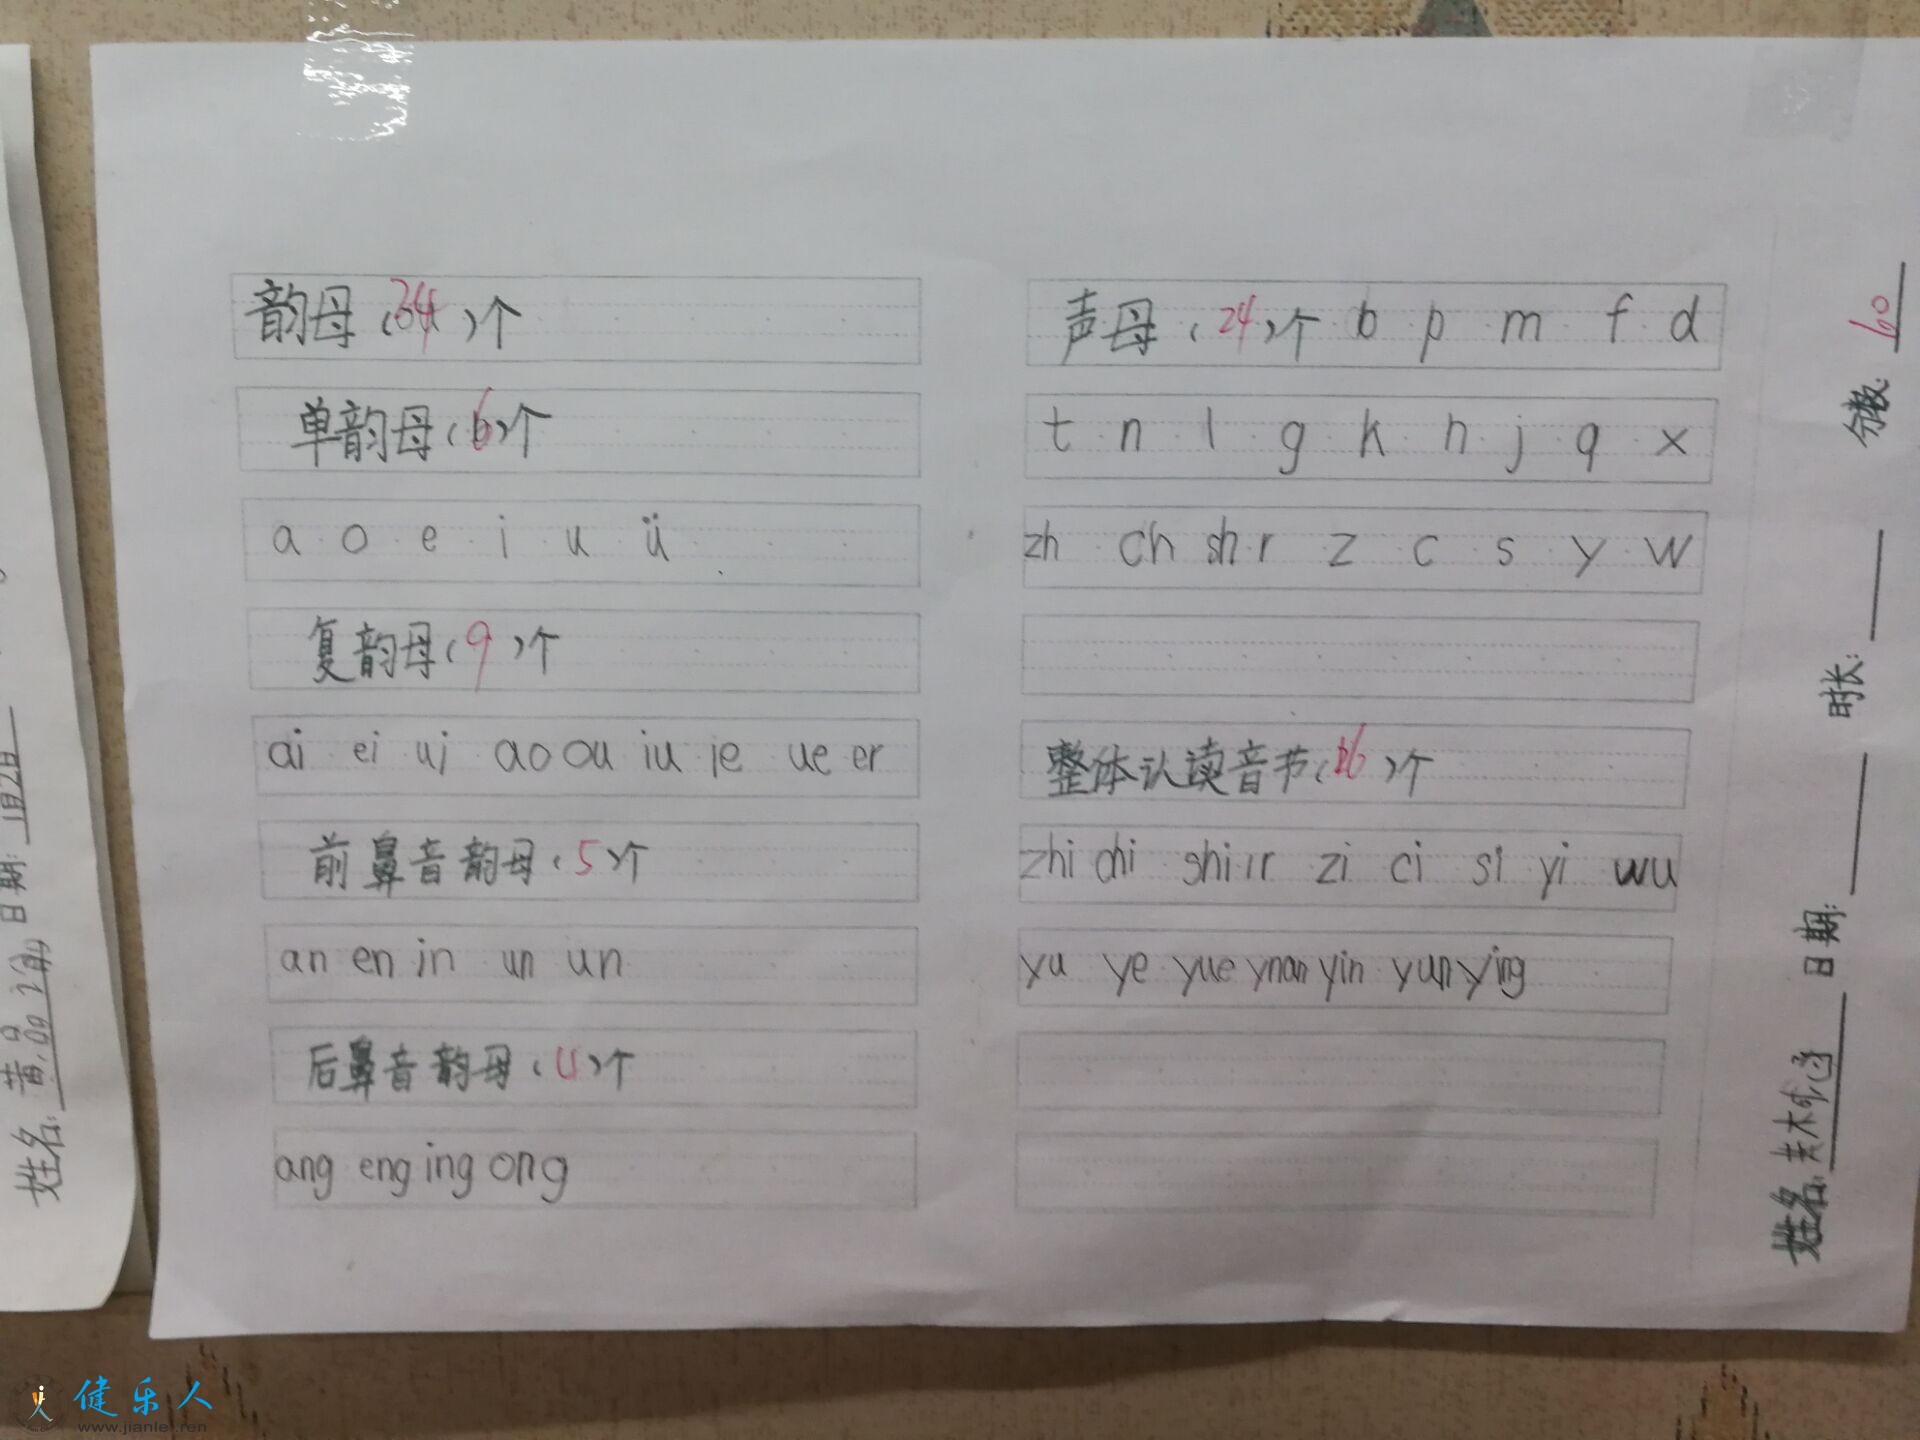 韵母(34)个
单韵母(6)个
a o e i u ü
复韵母(9)个
ai ei ui ao ou iu ie ue er
前鼻音韵母(5)个
an en in un un
后鼻音韵母(4)个
ang eng ing ong
声母(24)个 b p m f d
t n l g k h j q x
zh ch sh r z c s y w
整体认读音节(16)个
zhi chi shi ir zi ci si yi wu
yu ye yue ynan yin yun ying
姓名: 日期: 时长: 分数: 60
姓名: 日期: 1月2日
健乐人
www.jianle.ren